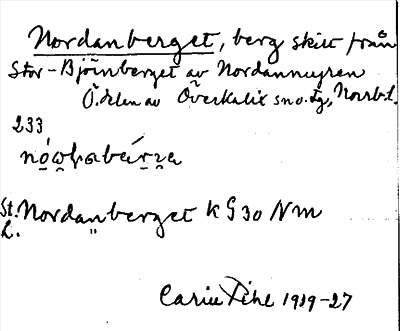 Nordanberget, berg skilt från
Stor-Björnberget av Nordanmyren
Ö. delen av Överkalix sn o. tg, Norrb. l.
233
St. Nordanberget K G 30 N m
L.
Carin Pihl 1919-27